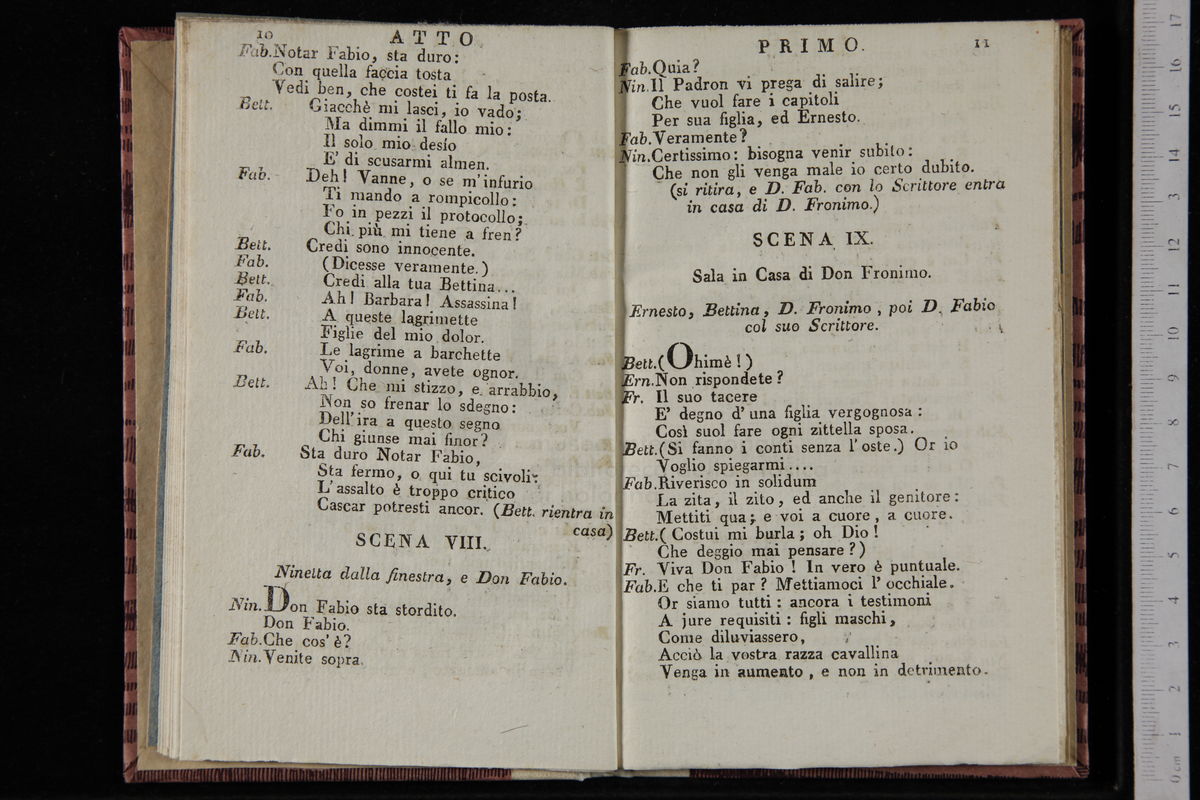 10 ATTO
Fab. Notar Fabio, sta duro:
Con quella faccia tosta
Vedi ben, che costei ti fa la posta.
Bett. Giacchè mi lasci, io vado;
Ma dimmi il fallo mio:
Il solo mio desío
E' di scusarmi almen.
Fab. Deh! Vanne, o se m'infurio
Ti mando a rompicollo:
Fo in pezzi il protocollo;
Chi più mi tiene a fren?
Bett. Credi sono innocente.
Fab. (Dicesse veramente.)
Bett. Credi alla tua Bettina...
Fab. Ah! Barbara! Assassina!
Bett. A queste lagrimette
Figlie del mio dolor.
Fab. Le lagrime a barchette
Voi, donne, avete ognor.
Bett. Ah! Che mi stizzo, e arrabbio,
Non so frenar lo sdegno:
Dell'ira a questo segno
Chi giunse mai finor?
Fab. Sta duro Notar Fabio,
Sta fermo, o qui tu scivoli:
L'assalto è troppo critico
Cascar potresti ancor. (Bett. rientra in
casa)
SCENA VIII.
Ninetta dalla finestra, e Don Fabio.
Nin. Don Fabio sta stordito.
Don Fabio.
Fab. Che cos'è?
Nin. Venite sopra.
PRIMO. 11
Fab. Quia?
Nin. Il Padron vi prega di salire;
Che vuol fare i capitoli
Per sua figlia, ed Ernesto.
Fab. Veramente?
Nin. Certissimo: bisogna venir subito:
Che non gli venga male io certo dubito.
(si ritira, e D. Fab. con lo Scrittore entra
in casa di D. Fronimo.)
SCENA IX.
Sala in Casa di Don Fronimo.
Ernesto, Bettina, D. Fronimo, poi D. Fabio
col suo Scrittore.
Bett. (Ohimè!)
Ern. Non rispondete?
Fr. Il suo tacere
E' degno d'una figlia vergognosa:
Così suol fare ogni zittella sposa.
Bett. (Si fanno i conti senza l'oste.) Or io
Voglio spiegarmi....
Fab. Riverisco in solidum
La zita, il zito, ed anche il genitore:
Mettiti qua; e voi a cuore, a cuore.
Bett. (Costui mi burla; oh Dio!
Che deggio mai pensare?)
Fr. Viva Don Fabio! In vero è puntuale.
Fab. E che ti par? Mettiamoci l'occhiale.
Or siamo tutti: ancora i testimoni
A jure requisiti: figli maschi,
Come diluviassero,
Acciò la vostra razza cavallina
Venga in aumento, e non in detrimento.
0 cm 1 2 3 4 5 6 7 8 9 10 11 12 13 14 15 16 17